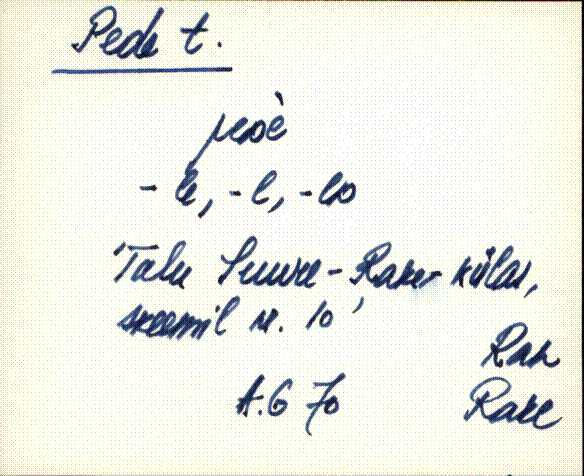 Pede t.
pedè
- le, -l, -lo
'Talu Suure-Rake külas,
skeemil nr. 10'
Ran
A.G 70 Rake